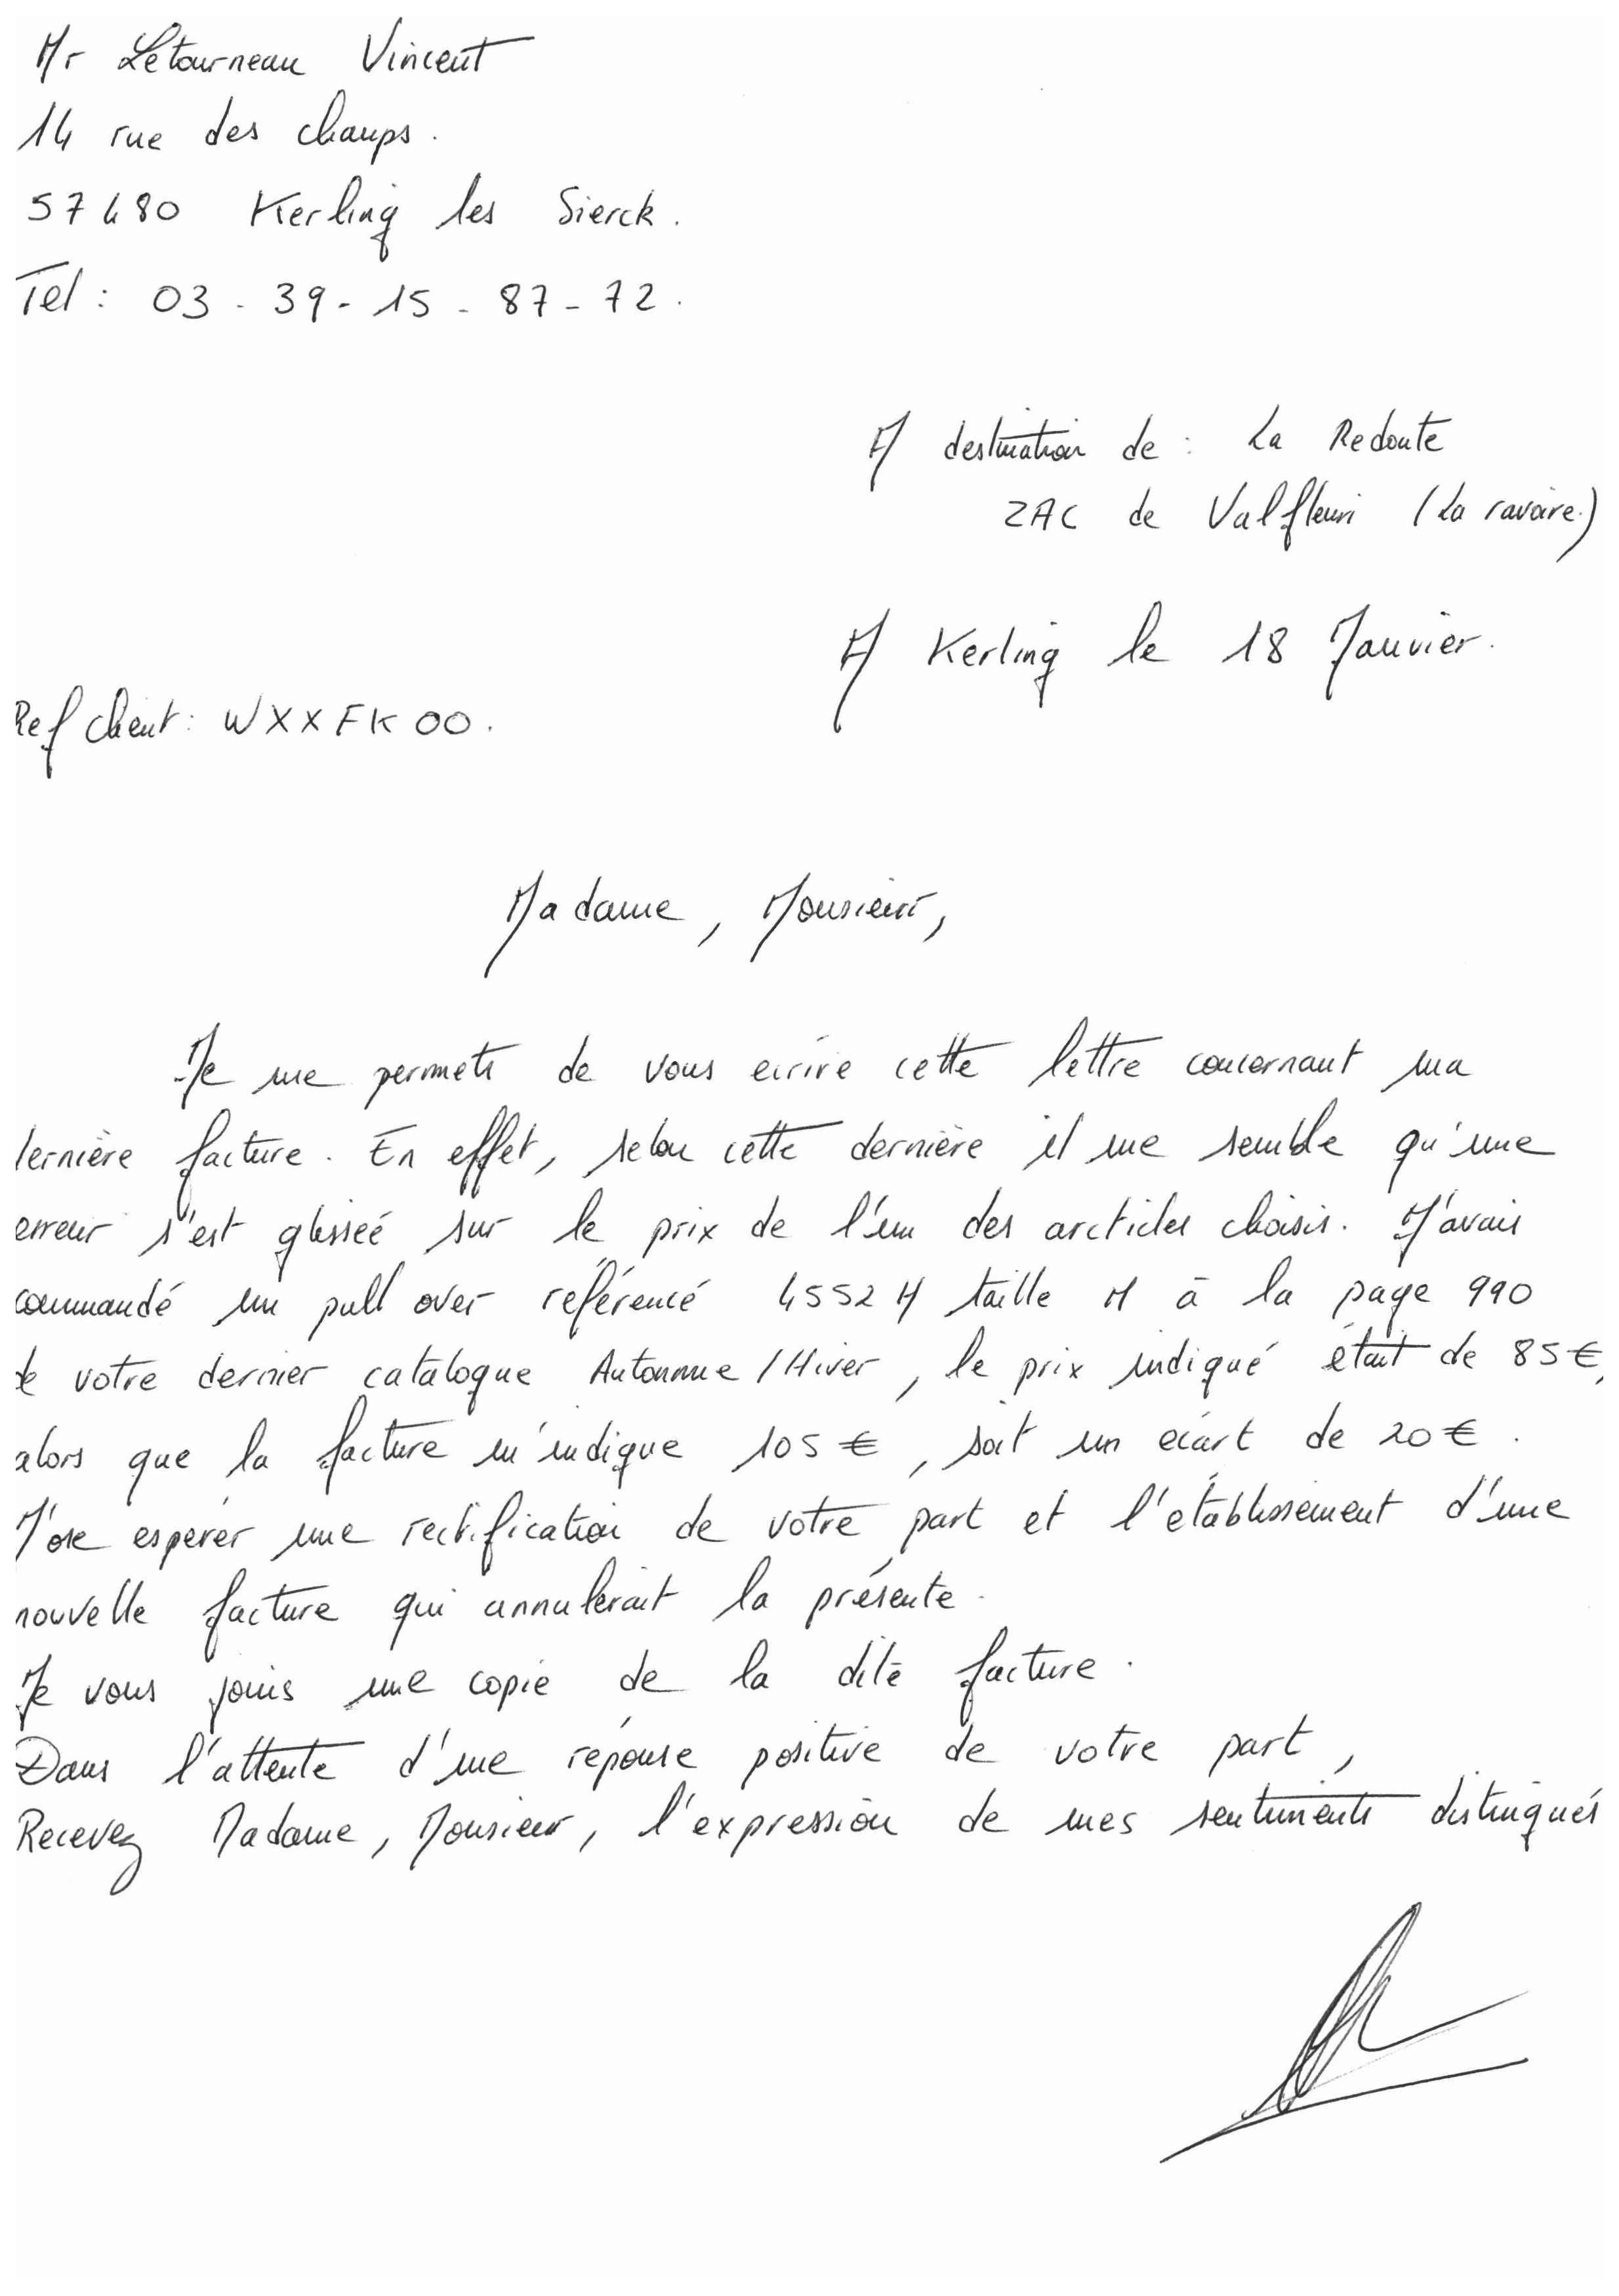 Mr Letourneau Vincent
14 rue des champs.
57480 Kerling les Sierck.
Tel : 03 - 39 - 15 - 87 - 72.
A destination de : La Redoute
ZAC de Valfleuri (La ravoire.)
A Kerling le 18 Janvier.
Ref client : WXXFK00.
Madame, Monsieur,
Je me permets de vous écrire cette lettre concernant ma
dernière facture. En effet, selon cette dernière il me semble qu'une
erreur s'est glisseé sur le prix de l'un des arcticles choisis. J'avais
commandé un pull over référencé 4552H taille M à la page 990
de votre dernier catalogue Automne / Hiver, le prix indiqué était de 85€,
alors que la facture m'indique 105 €, soit un écart de 20 €.
J'ose espérer une rectification de votre part et l'établissement d'une
nouvelle facture qui annulerait la présente.
Je vous joins une copie de la dite facture.
Dans l'attente d'une réponse positive de votre part,
Recevez Madame, Monsieur, l'expression de mes sentiments distingués